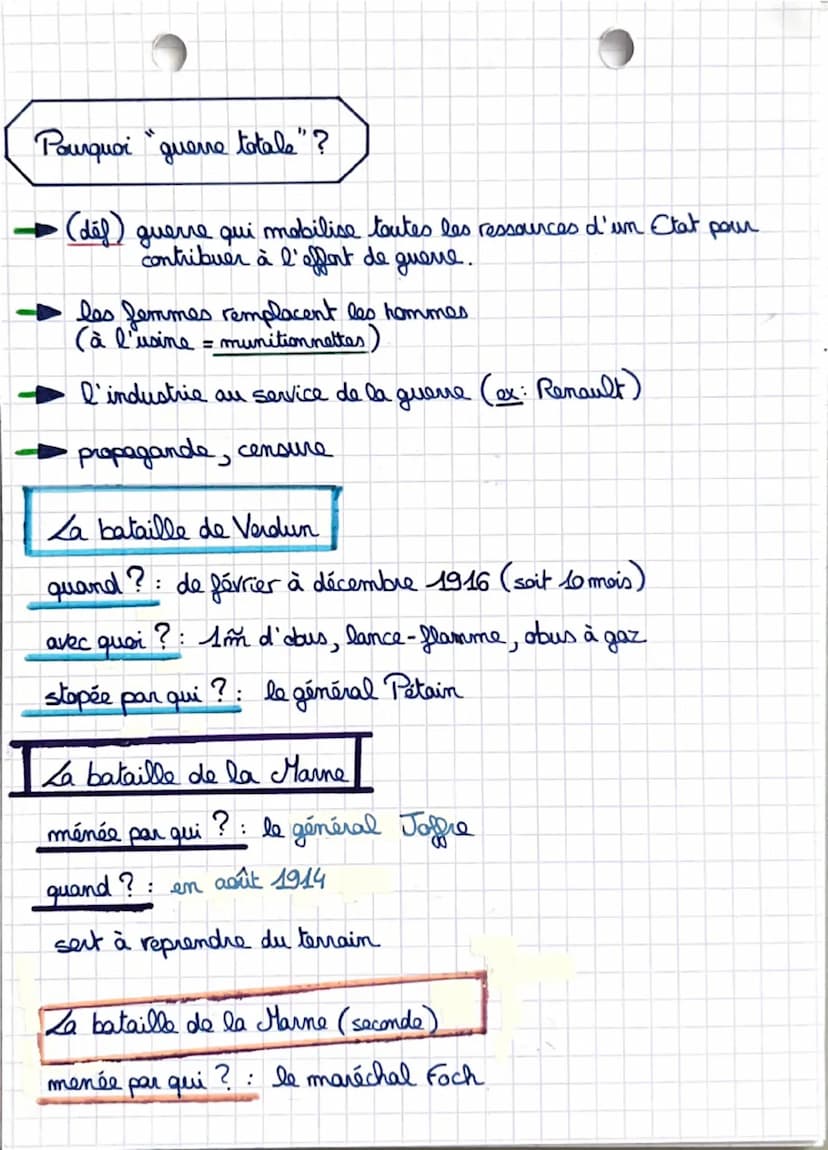 Pourquoi "guerre totale" ?
(déf) guerre qui mobilise toutes les ressources d'un Etat pour
contribuer à l'effort de guerre.
les femmes remplacent les hommes
(à l'usine = munitionnettes)
l'industrie au service de la guerre (ex: Renault)
propagande, censure
La bataille de Verdun
quand ? : de février à décembre 1916 (soit 10 mois)
avec quoi ? : 1m d'obus, lance-flamme, obus à gaz
stopée par qui ? : le général Pétain
La bataille de la Marne
ménée par qui ? : le général Joffre
quand ? : en août 1914
sert à reprendre du terrain
La bataille de la Marne (seconde)
menée par qui ? : le maréchal Foch